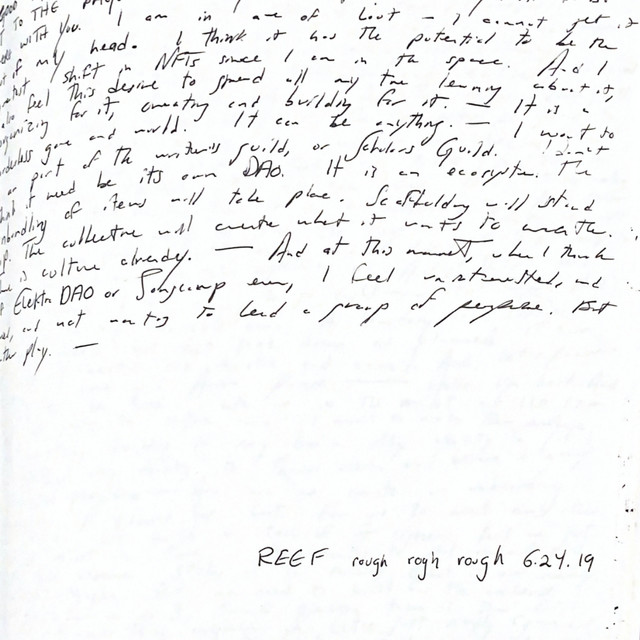 TO THE
WITH YOU. I am in awe of Loot – I cannot get it
of my head. I think it has the potential to be the
shift in NFTs since I am in the space. And I
feel this desire to spend all my time learning about it,
organizing for it, creating and building for it. — It is a
borderless game and world. It can be anything. — I want to
part of the writer's guild, or Scholars Guild. I don't
need be its own DAO. It is an ecosystem. The
unbundling of items will take place. Scaffolding will stand
up. The collective will create what it wants to create.
is culture already. — And at this moment, when I think
Elektra DAO or Songcamp even, I feel uninterested, and
and not wanting to lead a group of people. But
play. —
REEF rough rough rough 6.24.19